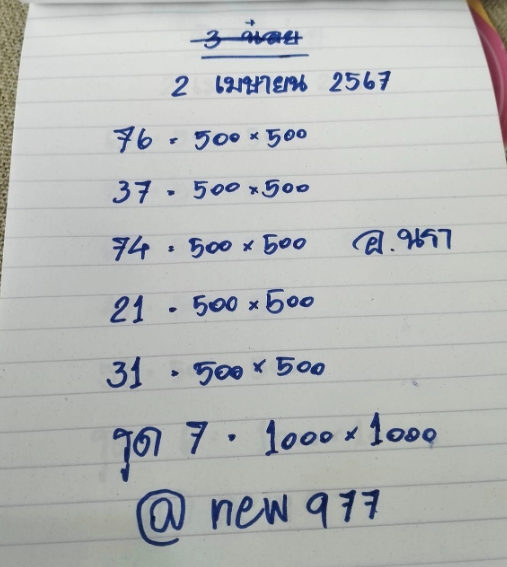 2 เมษายน 2567
76 = 500 × 500
37 = 500 × 500
74 = 500 × 500 อ.นรา
21 = 500 × 500
31 = 500 × 500
รูด 7 = 1000 × 1000
@ new 977